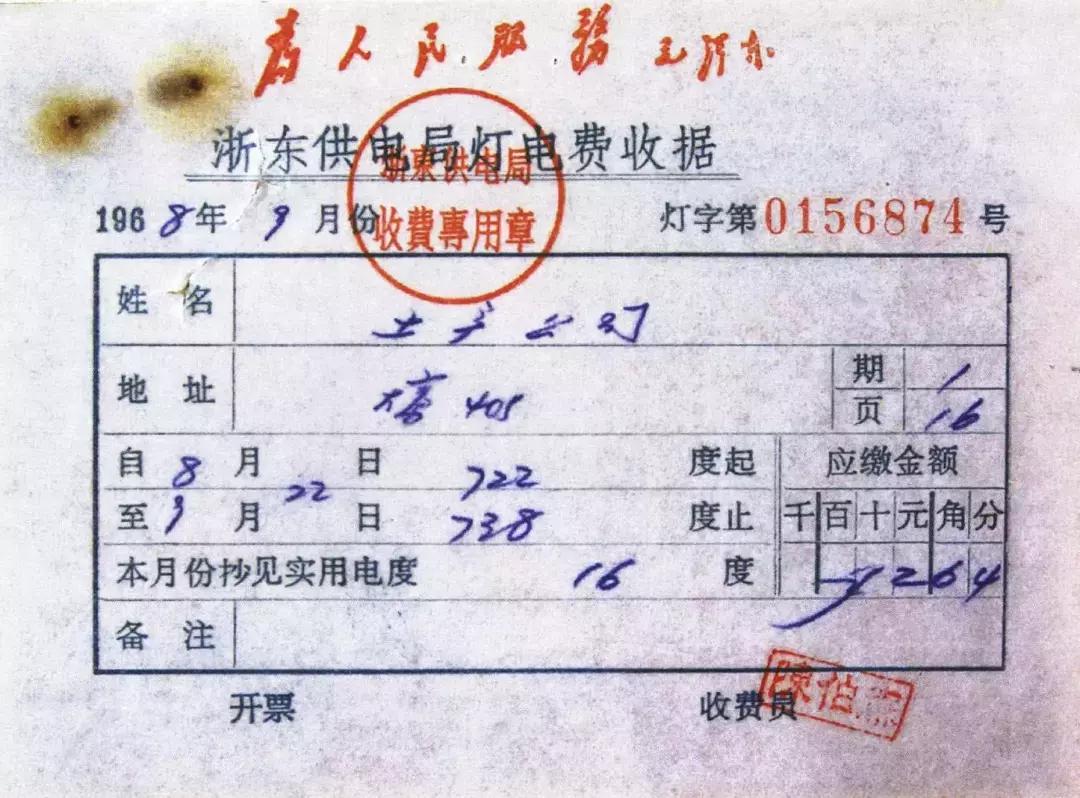 为人民服务 毛泽东
浙东供电局灯电费收据
浙東供电局
收費專用章
1968年 9月份 灯字第0156874号
姓名 土产公司
地址 405 期 1
页 16
自8月22日 722度起 应缴金额
至9月 日 738度止 千百十元角分
本月份抄见实用电度 16度 2 6 4
备注
开票 收费员 陳伯